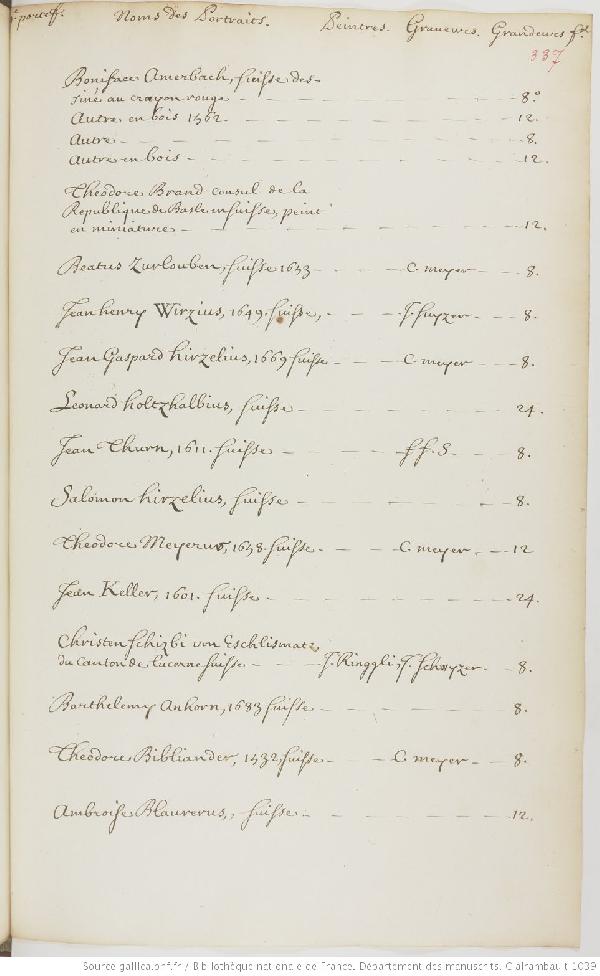 portef. Noms des Portraits. Peintres. Graveurs. Grandeurs
337
Boniface Amerbach, suisse des-
siné au crayon rouge - - - 8.º
Autre en bois 1562 - - - 12.
Autre - - - 8.
Autre en bois - - - 12.
Theodore Brand consul de la
Republique de Basle en suisse, peint
en miniature - - - 12.
Beatus Zurlouben, suisse 1653 - - - C. meyer - - 8.
Jean henry Wirzius, 1649. suisse, - - - J. suyzer - - 8.
Jean Gaspard hirzelius, 1669 suisse - - - C. meyer - - 8.
Leonard holtzhalbius, suisse - - - 24.
Jean Thurn, 1611. suisse - - - ff. S - - 8.
Salomon hirzelius, suisse - - - 8.
Theodore Meyerus, 1658. suisse - - - C. meyer - - 12
Jean Keller, 1601. suisse - - - 24.
Christen schizbi von Eschlismatz,
du canton de lucerne suisse - - - J. Ringgli, J. schwyzer. - 8.
Barthelemy Anhorn, 1683 suisse - - - 8.
Theodore Bibliander, 1532, suisse - - - C. meyer - - 8.
Ambroise Blaurerus, suisse - - - 12.
Source gallica.bnf.fr / Bibliothèque nationale de France. Département des manuscrits. Clairambault 1039